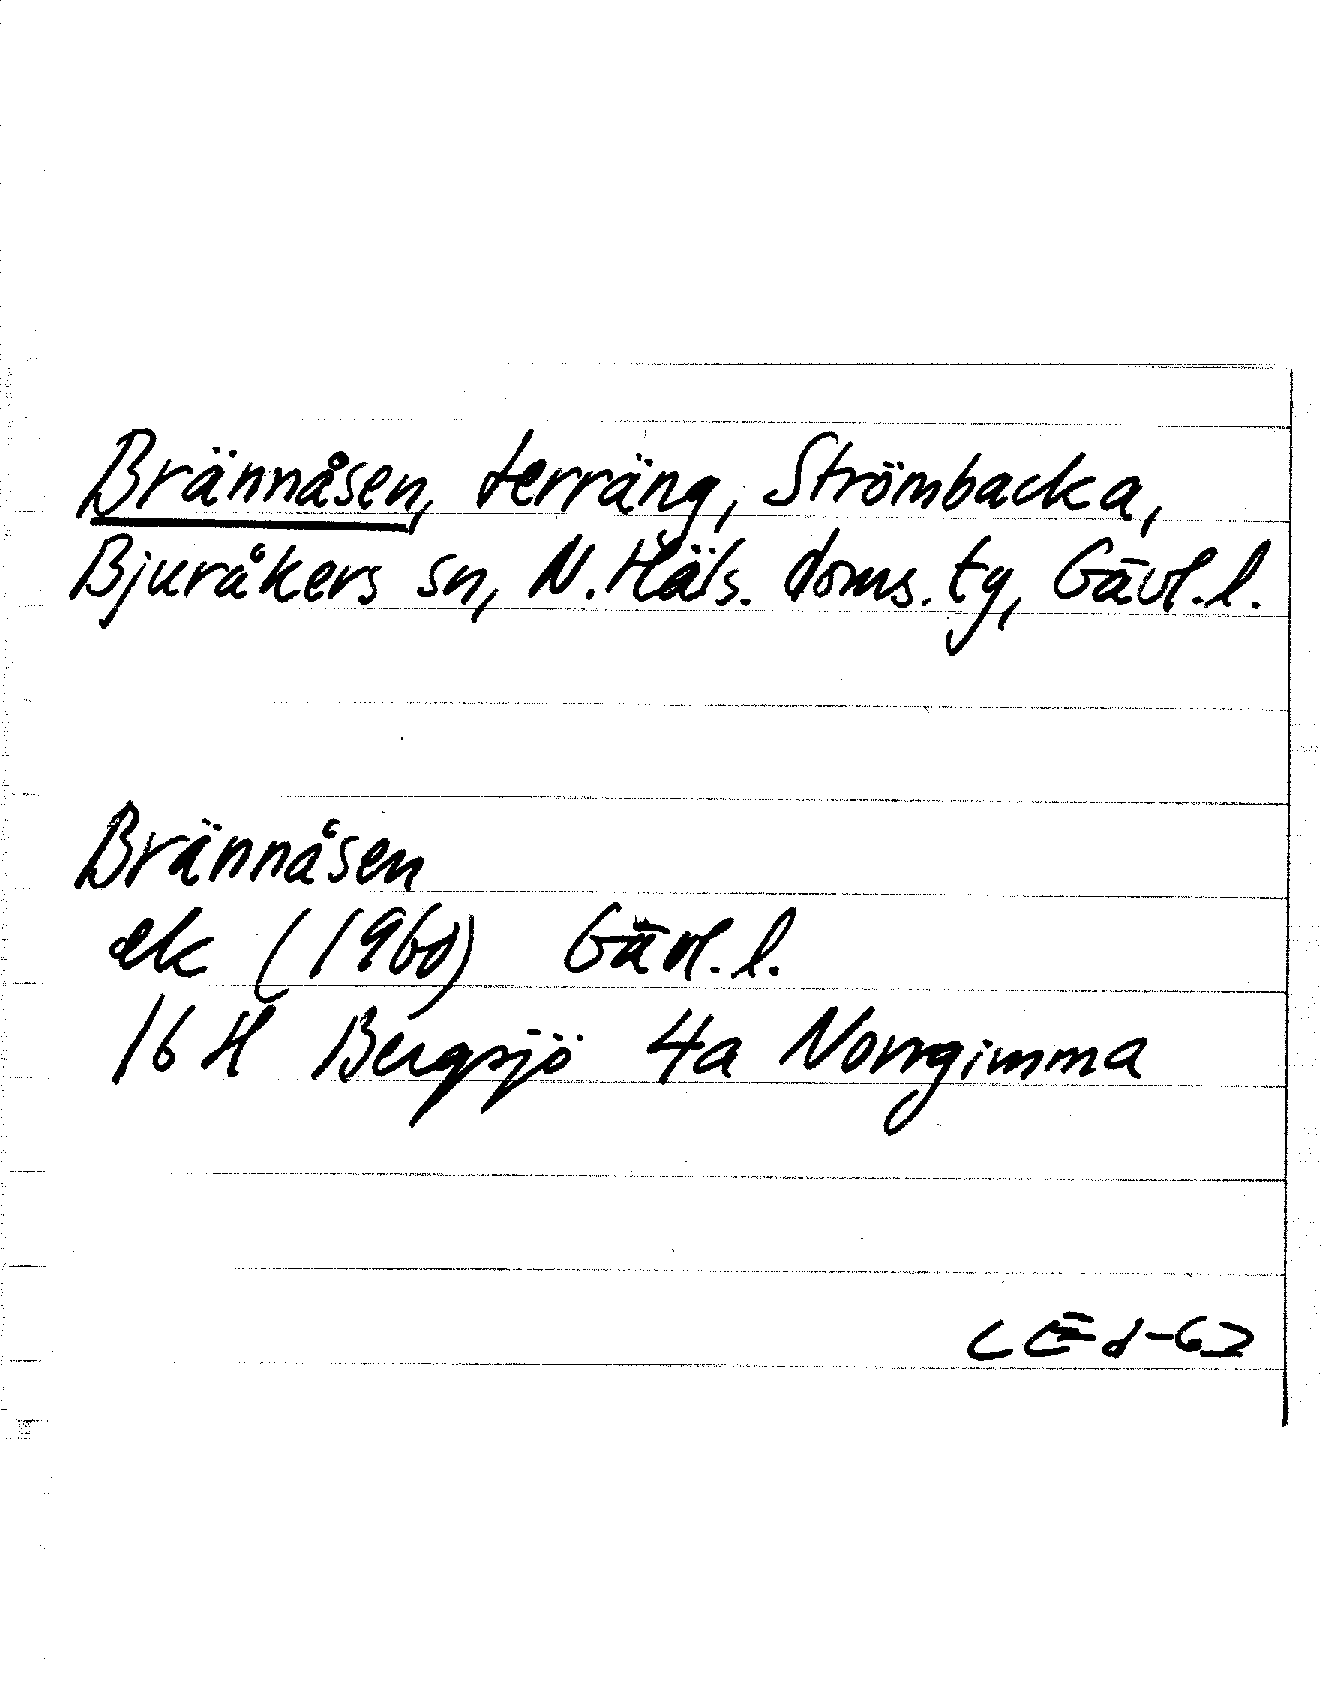 Brännåsen, terräng, Strömbacka,
Bjuråkers sn, N. Häls. doms. tg, Gävl. l.
Brännåsen
ek (1960) Gävl. l.
16 H Bergsjö 4a Norrgimma
CEd-62